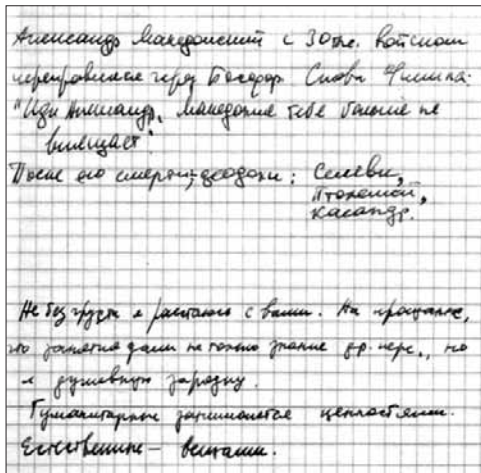 Александр Македонский с 30 тыс. войском
переправился через Босфор. Слова Филиппа:
"Иди Александр, Македония тебе больше не
вмещает".
После его смерти диадохи: Селевк,
Птолемей,
Касандр.
Не без грусти я расстаюсь с вами. На прощание,
что занятия дали не только знание др. перс., но
и душевную зарядку.
Гуманитарные занимаются ценностями.
Естественные – вещами.